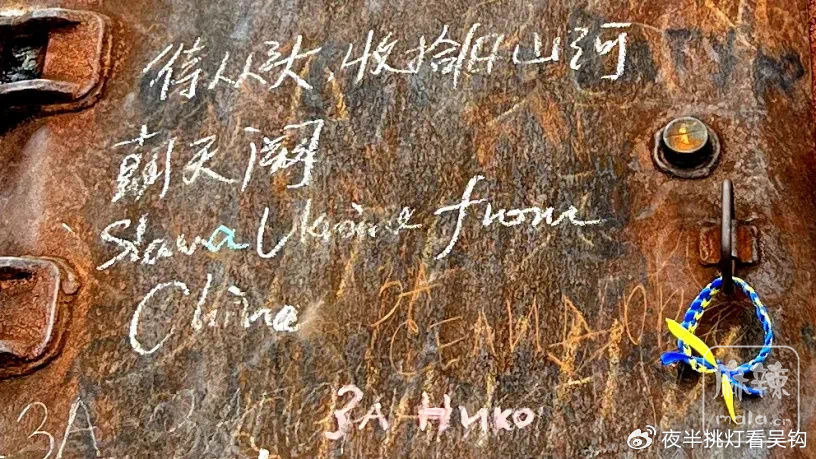 待从头、收拾旧山河
朝天阙
Slava Ukraine from
China
ЗА
ЗА НИКО
麻辣
mala.cn
夜半挑灯看吴钩